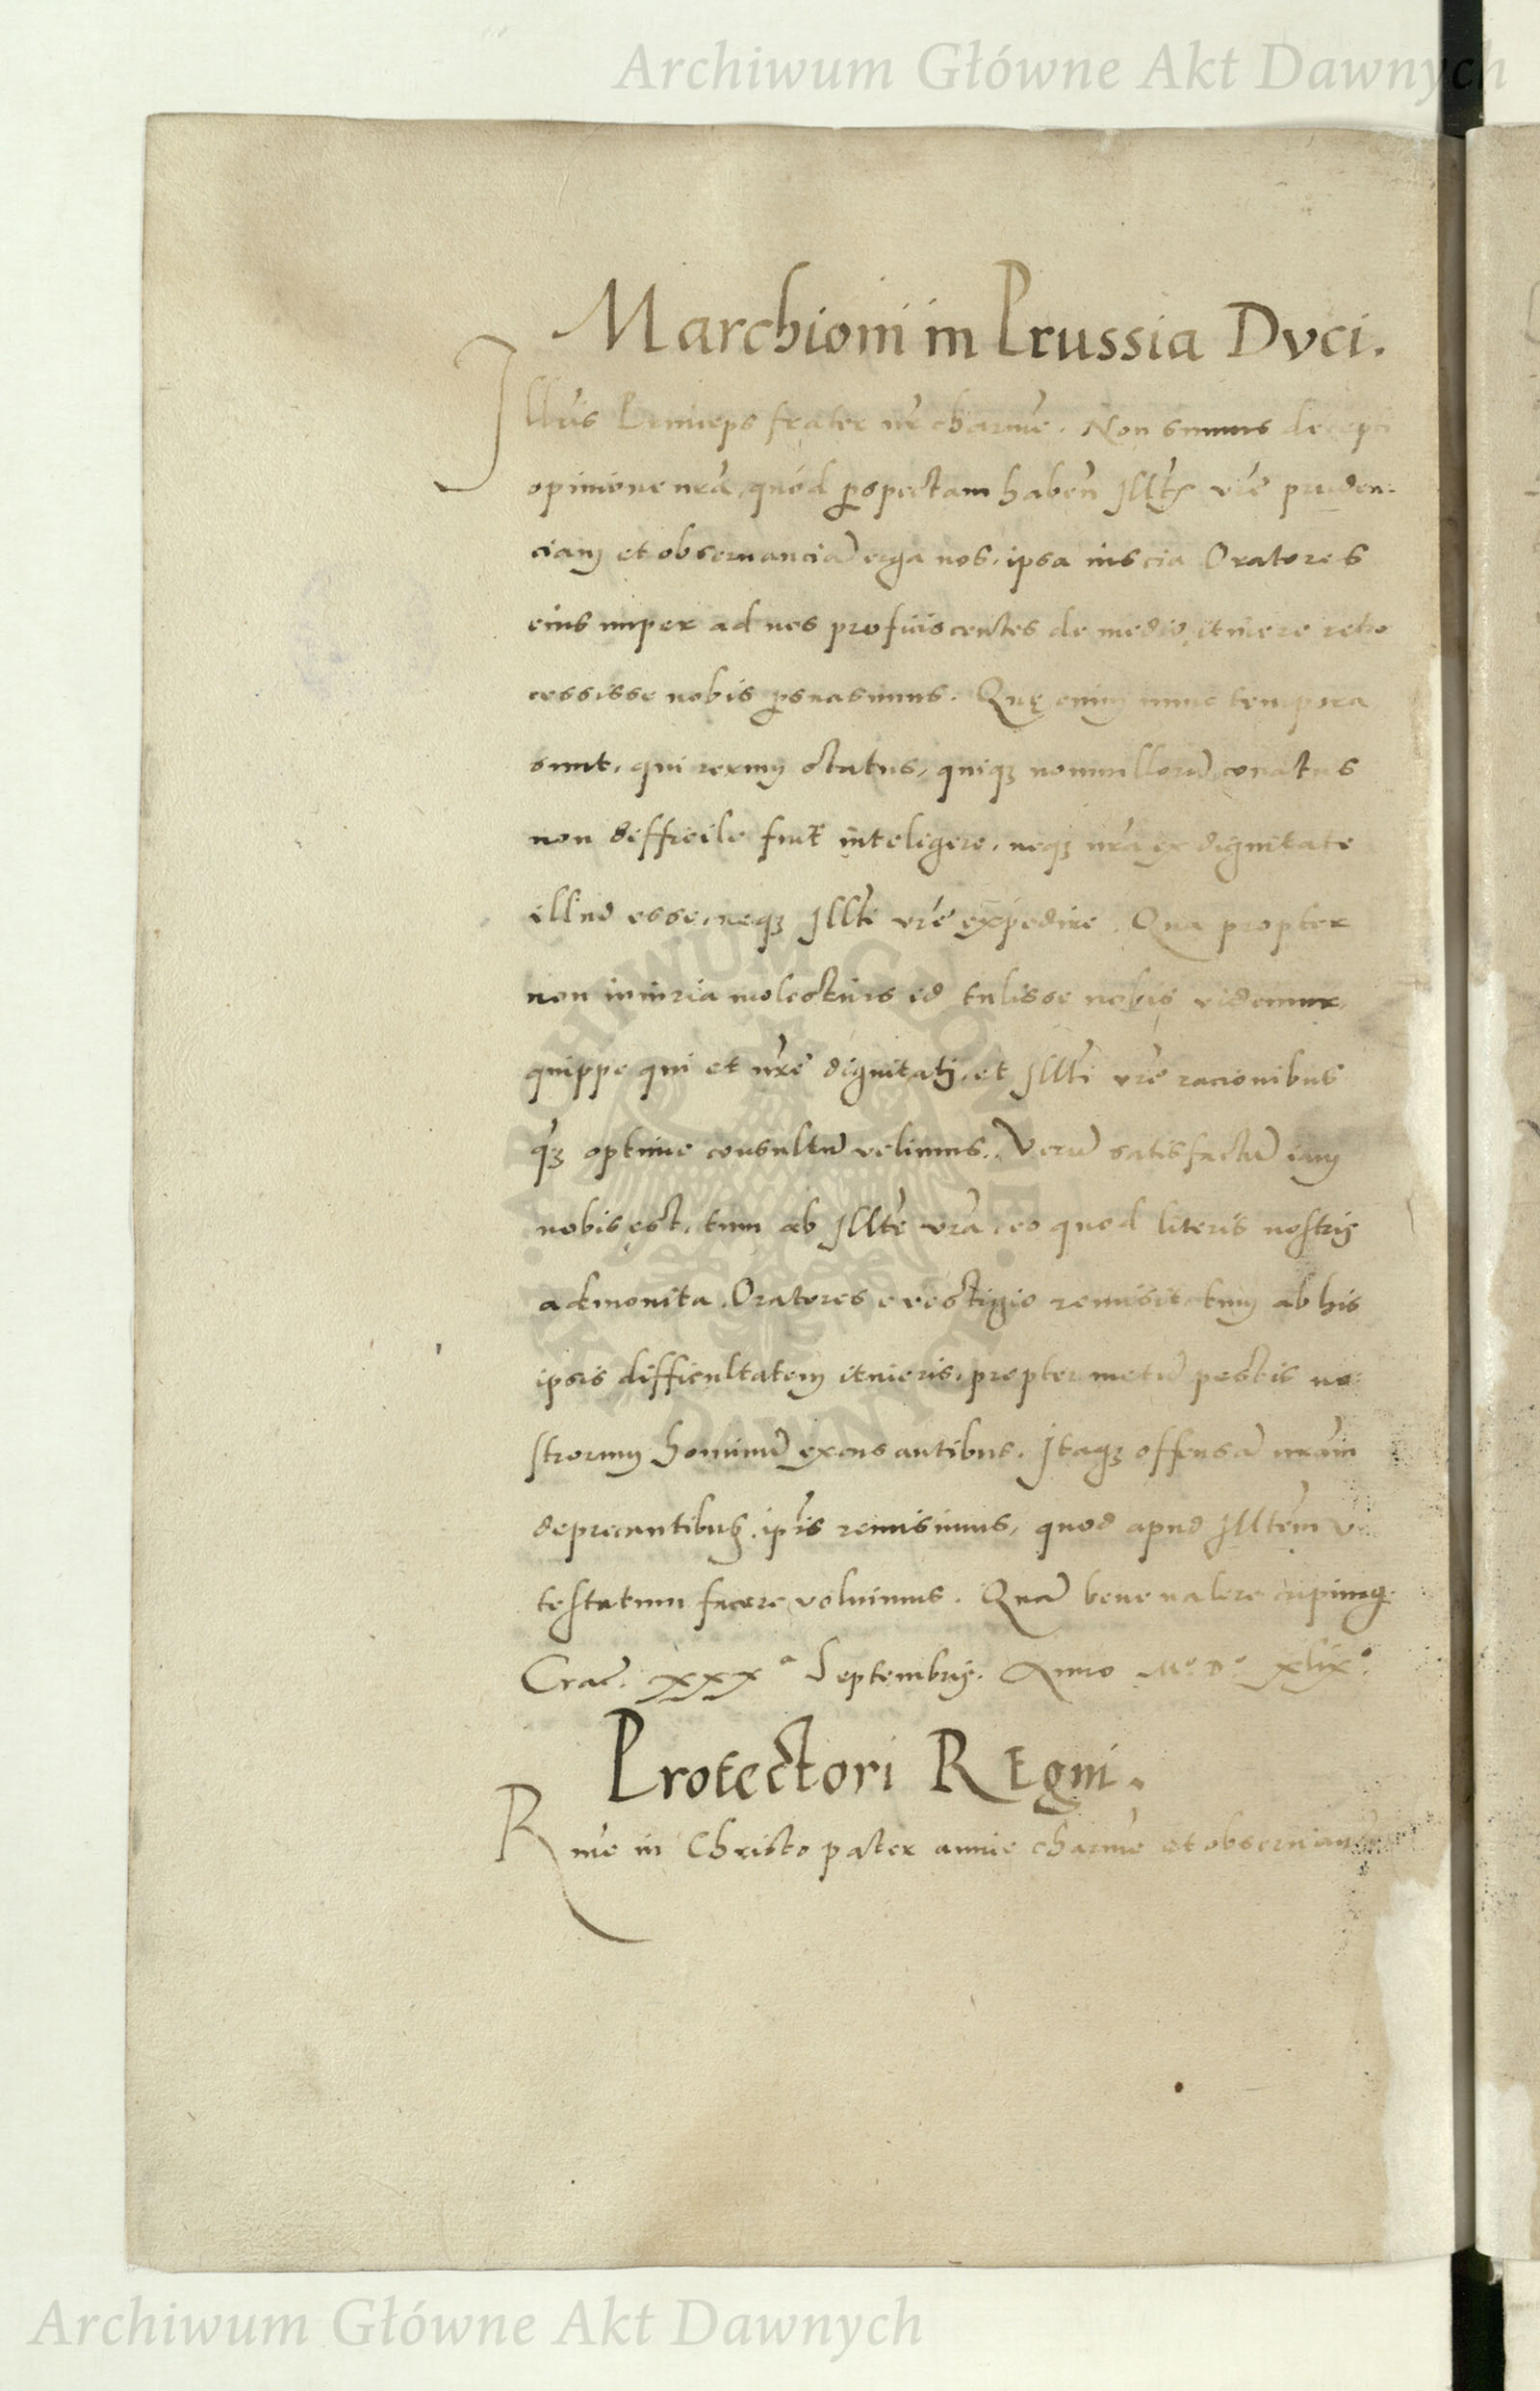 Archiwum Główne Akt Dawnych
Marchioni in Prussia Dvci.
Illris Princeps frater nr charme. Non sumus decepti
opinione nra, quod perspectam haben Illtis vre pruden-
ciam et obseruanciã erga nos, ipsa inscia Oratores
eius nuper ad nos proficiscentes de medio itinere retro
cessisse nobis persuasimus. Quę enim nunc tempora
sunt, qui rerum status, quiq nonnullorũ conatus
non difficile fuit inteligere, neq nra ex dignitate
illud esse, neq Illti vre expedire. Qua propter
non iniuria molestius id tulisse nobis videmur,
quippe qui et nre dignitati, et Illti vre racionibus
q optime consultũ velimus. Verũ satisfactũ iam
nobis est, tum ab Illte vra, eo quod literis nostris
admonita Oratores e vestigio remisit, tum ab his
ipsis difficultatem itineris, propter metũ pestis no-
strorum hominũ excusantibus. Itaq offensã nram
deprecantibus ipsis remisimus, quod apud Illtem v.
testatum facere voluimus. Quã bene valere cupimus.
Crac. xxx a Septembris. Anno Mº. Dº. xlixº.
Protectori Regni.
Rme in Christo pater amice charme et obseruan
ARCHIWUM GŁÓWNE AKT DAWNYCH
Archiwum Główne Akt Dawnych